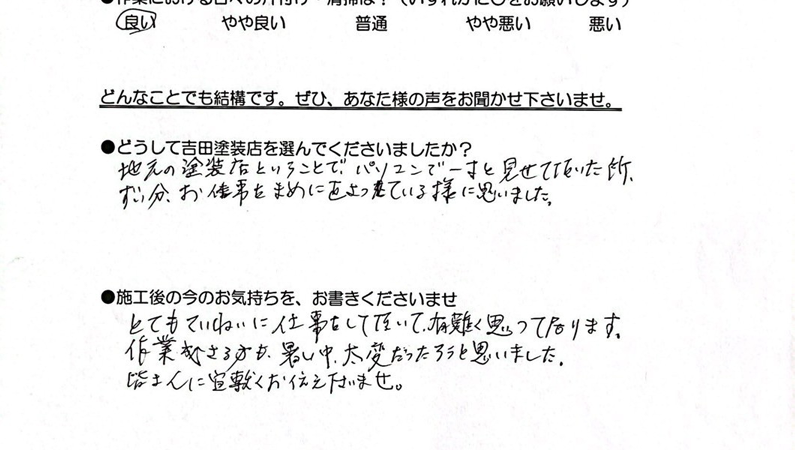 ●作業における日々の片付け・清掃は?(いずれかに○をお願いします)
良い やや良い 普通 やや悪い 悪い
どんなことでも結構です。ぜひ、あなた様の声をお聞かせ下さいませ。
●どうして吉田塗装店を選んでくださいましたか?
地元の塗装店ということで、パソコンで一寸と見せて頂いた所、
ずい分、お仕事をまめに なさっている様に思いました。
●施工後の今のお気持ちを、お書きくださいませ
とてもていねいに仕事をして頂いて、有難く思って居ります。
作業 さる方が、暑い中、大変だったろうと思いました。
皆さんに宜敷くお伝え下さいませ。